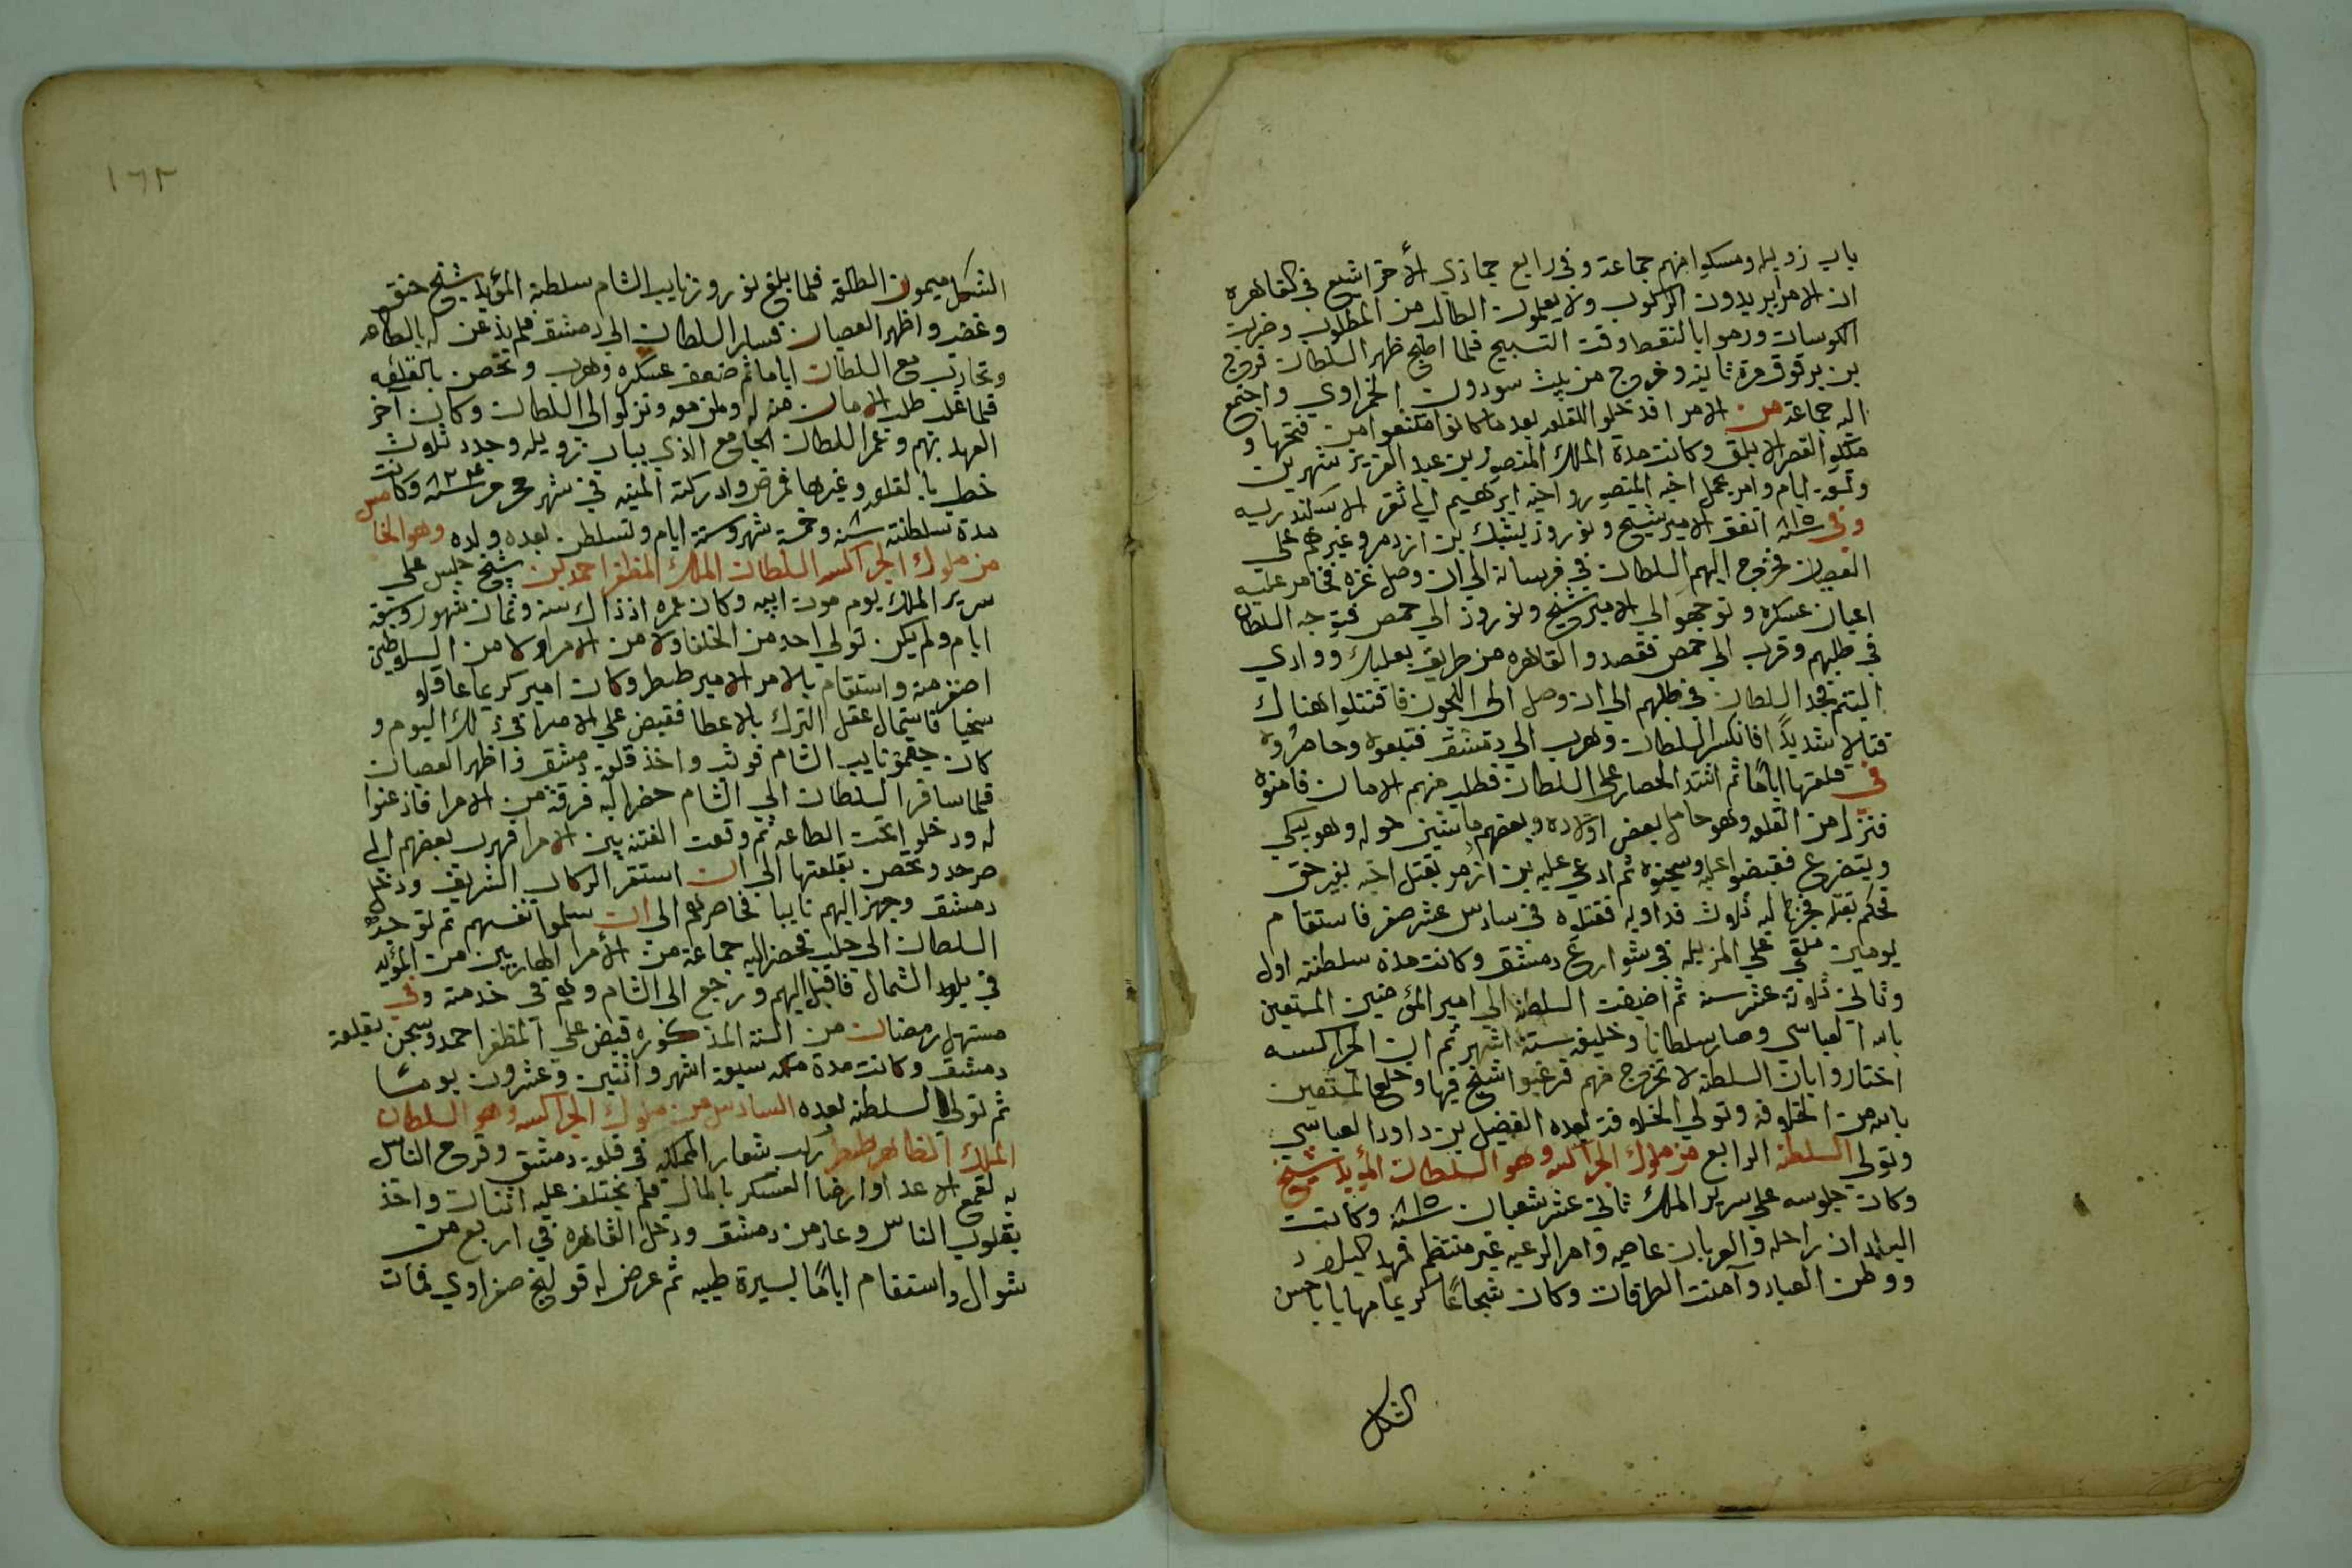 باب زويله ومسكوا منهم جماعة وفي رابع جمادي الأخر اشيع في القاهرة
ان الامرا يريدون الركوب ولا يعلمون الطالب من المطلوب وضربت
الكوسات ورموا بالنقط وقت التسبيح فلما اصبح ظهر السلطان فرج
بن برقوق مرة ثانيه وخرج من بيت سودون الحمزاوي واجتمع
اليه جماعة من الامرا فدخلوا القلعه بعد ما كانوا امتنعوا من فتحها و
ملكوا القصر الابلق وكانت مدة الملك المنصور بن عبد العزيز شهرين
وتسعة ايام وامر بحمل اخيه المنصور واخيه ابرهيم الي ثغر الاسكندريه
وفي سنة ٨١٥ اتفق الامير شيخ ونوروز يشبك بن ازدمر وغيرهم على
العصيان فخرج اليهم السلطان في فرسانه الي ان وصل غزه فخامر عليه
اعيان عسكره وتوجهوا الي الامير شيخ ونوروز الي حمص فتوجه السلطان
في طلبهم وقرب الي حمص فقصدوا القاهره من طريق بعلبك ووادي
التيم فجد السلطان في طلبهم الي ان وصل الى اللجون فاقتتلوا هناك
قتالا شديدًا فانكسر السلطان وهرب الي دمشق فتبعوه وحاصروه
في قلعتها ايامًا ثم اشتد الحصار على السلطان فطلب منهم الامان فامنوه
فنزل من القلعه وهو حامل بعض اولاده وبعضهم ماشين حوله وهو يبكي
ويتضرع فقبضوا عليه وسجنوه ثم ادعي عليه بن ازدمر بقتل اخيه بغير حق
فحكم بقتله فجهز اليه ثلاث فداويه فقتلوه في سادس عشر صفر فاستقام
يومين ملقي علي المزبله في شوارع دمشق وكانت مدة سلطنته اول
وثاني ثلاثة عشر سنه ثم اضيفت السلطنه الي امير المؤمنين المستعين
بالله العباسي وصار سلطانا وخليفه ستة اشهر ثم ان الجراكسه
اختاروا بان السلطنه لا تخرج منهم فرغبوا شيخ فيها وخلع المستعين
بالله من الخلافه وتولي الخلافة بعده الفضيل بن داود العباسي
وتولي السلطنه الرابع من ملوك الجراكسه وهو السلطان المؤيد شيخ
وكان جلوسه علي سرير الملك ثاني عشر شعبان سنة ٨١٥ وكانت
البلدان راحله والعربان عاصيه وامر الرعيه غير منتظم فمهد البلاد
ووطن العباد وآمنت الطرقات وكان شجاعًا كريما مهابا حسن
الشكل
١٦٢
الشكل ميمون الطلعة فلما بلغ نوروز نايب الشام سلطنة المؤيد شيخ حنق
وغضب واظهر العصيان فسار السلطان الي دمشق فلم يذعن له بالطاعه
وتحارب مع السلطان اياما ثم ضعف عسكره وهرب وتحصن بالقلعه
فلما غلب طلب الامان منه له ولمن معه ونزلوا الى السلطان وكان آخر
العهد بهم وعمر السلطان الجامع الذي بباب زويله وجدد ثلاث
خطب بالقلعه وغيرها فمرض وادركته المنيه في شهر محرم سنة ٨٢٤ وكانت
مدة سلطنته ٨ سنه وخمسة شهر وستة ايام وتسلطن بعده ولده وهو الخامس
من ملوك الجراكسه السلطان الملك المظفر احمد بن شيخ جلس على
سرير الملك يوم موت ابيه وكان عمره اذ ذاك سنه وثمان شهور وسبعة
ايام ولم يكن تولي احد من الخلفا ولا من الامرا ولا من السلاطين
اصغر منه واستقام بالامر الامير ططر وكان امير كريما عاقلا
سخيا فاستمال عقل الترك بالاعطا فقبض علي الامرا في ذلك اليوم و
كان جقمق نايب الشام فوثب واخذ قلعة دمشق واظهر العصيان
فلما سافر السلطان الي الشام حضر اليه فرقة من الامرا فاذعنوا
له ودخلوا تحت الطاعه ثم وقعت الفتنه بين الامرا فهرب بعضهم الي
صرخد وتحصن بقلعتها الي ان استقر الركاب الشريف ودخل
دمشق وجهز اليهم نايبا فحاصرهم الى ان سلموا نفسهم ثم توجه
السلطان الي حلب فحضر اليه جماعة من الأمرا الهاربين من المؤيد
في بلاد الشمال فاقبل اليهم ورجع الى الشام وهم في خدمته وفي
مستهل رمضان من السنة المذكوره قبض علي المظفر احمد وسجن بقلعة
دمشق وكانت مدة ملكه سبعة اشهر واثنين وعشرون يومًا
ثم تولي السلطنه بعده السادس من ملوك الجراكسه وهو السلطان
الملك الظاهر ططر ركب بشعار المملكه في قلعة دمشق وفرح الناس
به لقمع الاعدا وارضا العسكر بالمال فلم يختلف عليه اثنان واخذ
بقلوب الناس وعاد من دمشق ودخل القاهره في اربع من
شوال واستقام ايامًا بسيرة طيبه ثم عرض له قولنج صفراوي فمات